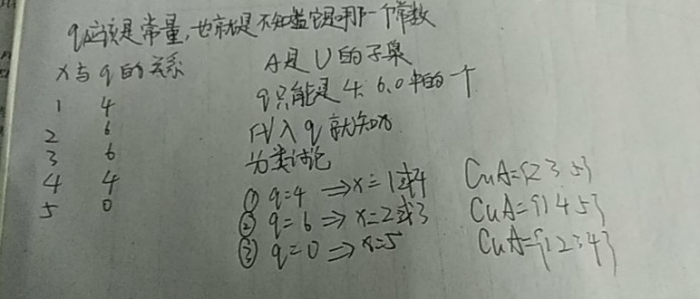 q应该是常量,也就是不知道它是哪一个常数
x与q的关系
1 4
2 6
3 6
4 4
5 0
A是U的子集
q只能是4、6、0中的一个
代入q就知x
分类讨论
① q=4 ⇒ x=1或4 CuA={2 3 5}
② q=6 ⇒ x=2或3 CuA={1 4 5}
③ q=0 ⇒ x=5 CuA={1 2 3 4}